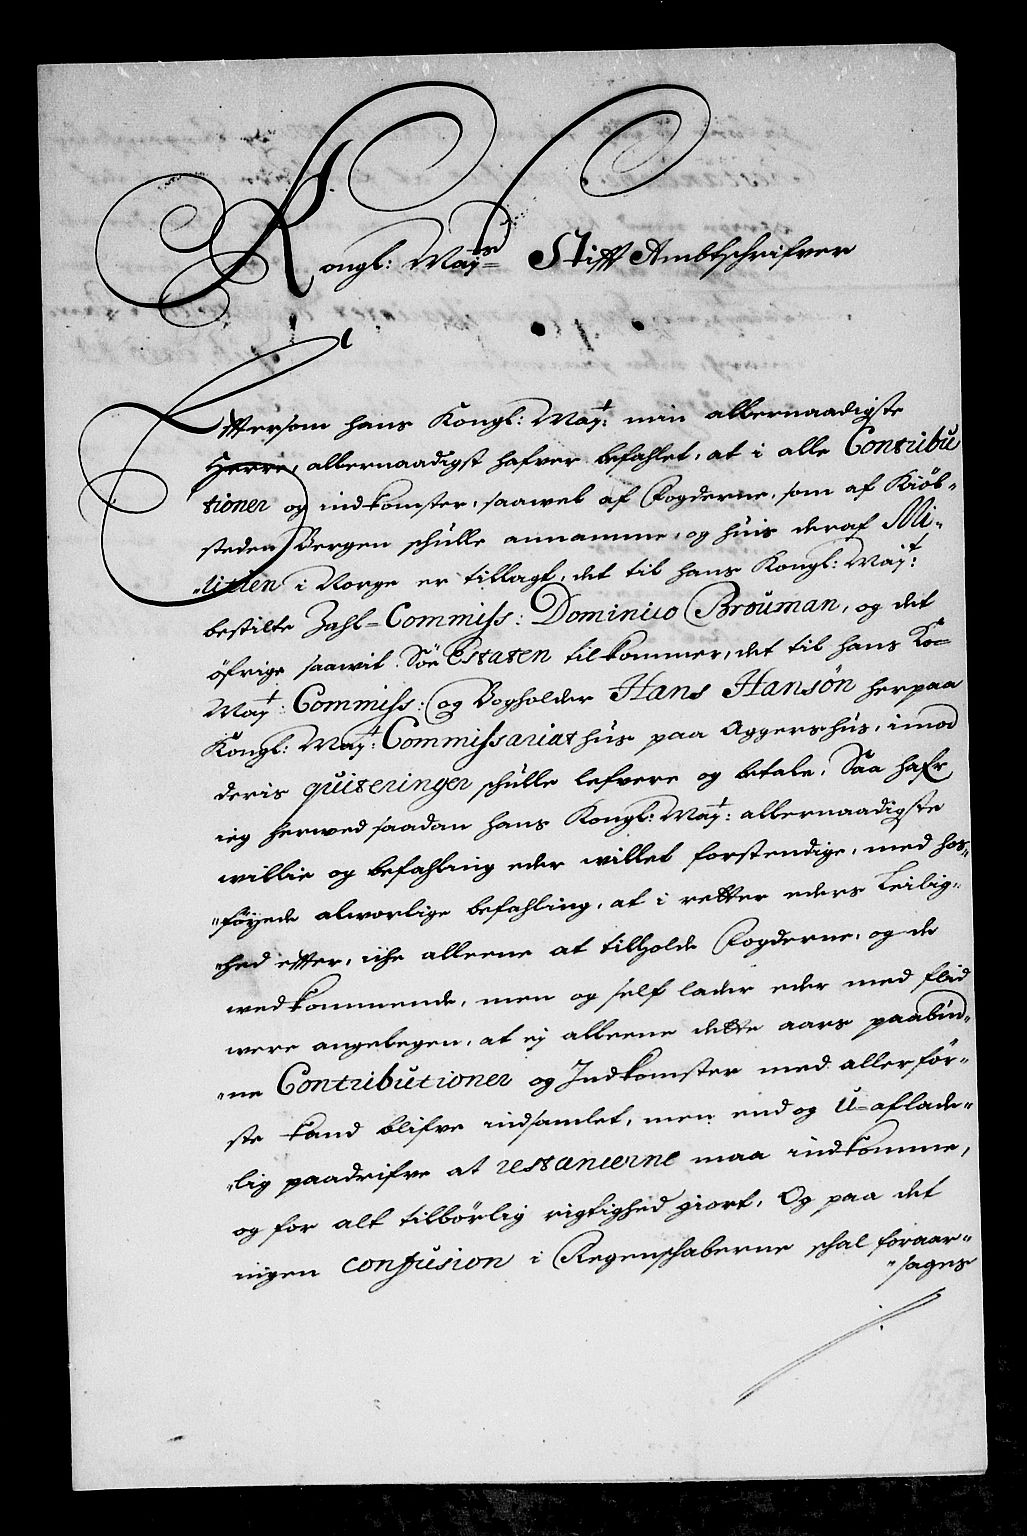 Kongl: May:ts Stifft Ambtschrifver
Effersom hans Kongl: May:t min allernaadigste
Herre, allernaadigst hafver befahlet, at i alle Contribu
tioner og indkomster, saavel af Fogderne, som af Kiöb-
steden Bergen schulle annamme, og huis deraf Mi-
-litien i Norge er tillagt, det til hans Kongl: May:t
bestilte Zahl-Commiss: Dominico Brouman, og det
öfrige saavit Söe Estaten tilkommer, det til hans Ko-
May:t Commiss: og Bogholder Hans Hansön herpaa
Kongl: May:t Commissariat hus paa Aggershus, imod
deris quiteringer schulle lefvere og betale, Saa hafr
ieg herved saadan hans Kongl: May:t allernaadigste
willie og befahling eder willet forstendige, med hos-
-föyede alworlige befahling, at i retter eders Leilig-
-hed effter, iche alleene at tilholde Fogderne, og de
wedkommende, men og self lader eder med flid
were angelegen, at ej alleene dette aars paabud-
-ne Contributioner og Indkomster med allerför-
ste kand blifve indsamlet, men end og U-aflade-
-lig paadrifve at restancerne maa indkomme,
og for alt tilbörlig rigtighed giort, Og paa det
ingen confusion i Regenschaberne schal foraar-
-sages